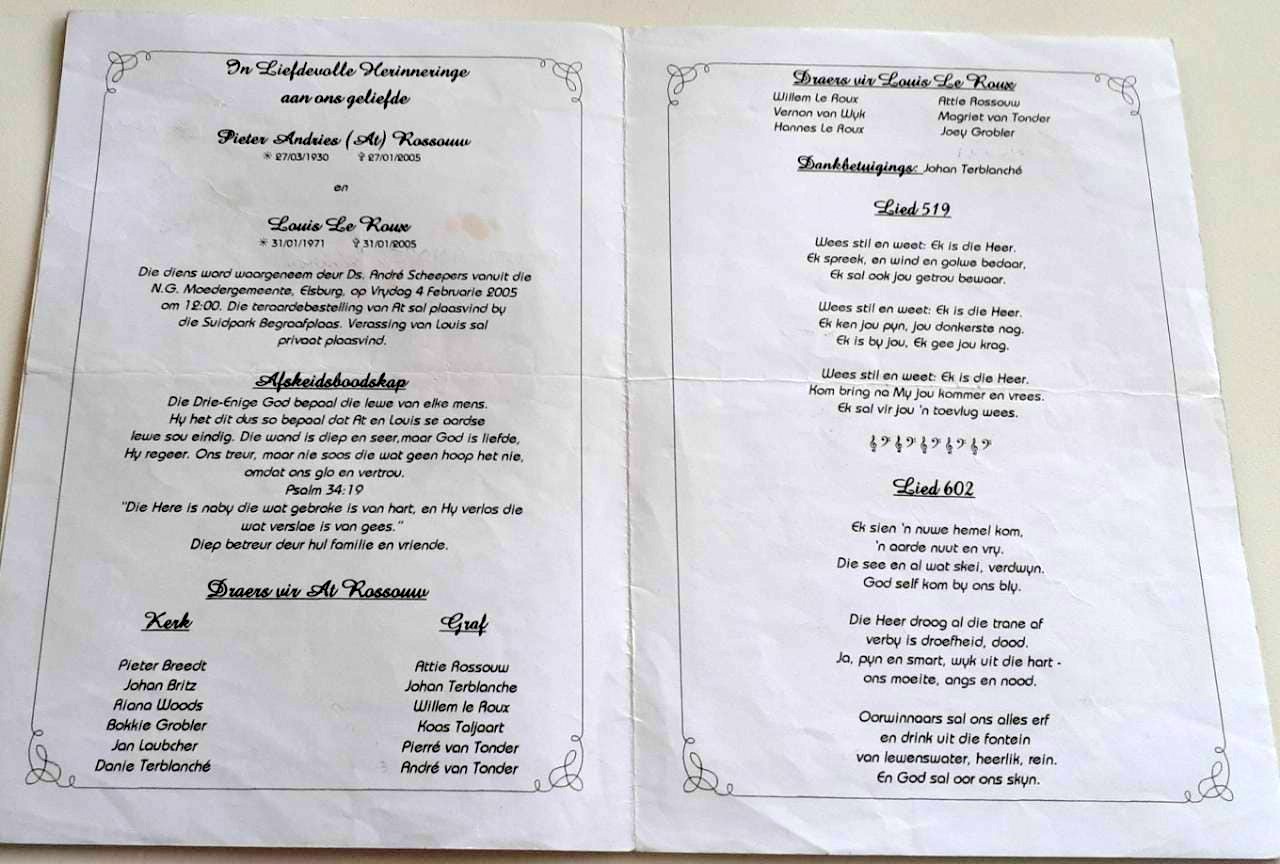 In Liefdevolle Herinneringe
aan ons geliefde
Pieter Andries (At) Rossouw
27/03/1930 27/01/2005
en
Louis Le Roux
31/01/1971 31/01/2005
Die diens word waargeneem deur Ds. André Scheepers vanuit die
N.G. Moedergemeente, Elsburg, op Vrydag 4 Februarie 2005
om 12:00. Die teraardebestelling van At sal plaasvind by
die Suidpark Begraafplaas. Verassing van Louis sal
privaat plaasvind.
Afskeidsboodskap
Die Drie-Enige God bepaal die lewe van elke mens.
Hy het dit dus so bepaal dat At en Louis se aardse
lewe sou eindig. Die wond is diep en seer,maar God is liefde,
Hy regeer. Ons treur, maar nie soos die wat geen hoop het nie,
omdat ons glo en vertrou.
Psalm 34:19
"Die Here is naby die wat gebroke is van hart, en Hy verlos die
wat verslae is van gees."
Diep betreur deur hul familie en vriende.
Draers vir At Rossouw
Kerk Graf
Pieter Breedt Attie Rossouw
Johan Britz Johan Terblanche
Riana Woods Willem le Roux
Bokkie Grobler Koos Taljaart
Jan Laubcher Pierré van Tonder
Danie Terblanché André van Tonder
Draers vir Louis Le Roux
Willem le Roux Attie Rossouw
Vernon van Wyk Magriet van Tonder
Hannes Le Roux Joey Grobler
Dankbetuigings: Johan Terblanché
Lied 519
Wees stil en weet: Ek is die Heer.
Ek spreek, en wind en golwe bedaar,
Ek sal ook jou getrou bewaar.
Wees stil en weet: Ek is die Heer.
Ek ken jou pyn, jou donkerste nag.
Ek is by jou, Ek gee jou krag.
Wees stil en weet: Ek is die Heer.
Kom bring na My jou kommer en vrees.
Ek sal vir jou 'n toevlug wees.
Lied 602
Ek sien 'n nuwe hemel kom,
'n aarde nuut en vry.
Die see en al wat skei, verdwyn.
God self kom by ons bly.
Die Heer droog al die trane af
verby is droefheid, dood.
Ja, pyn en smart, wyk uit die hart -
ons moeite, angs en nood.
Oorwinnaars sal ons alles erf
en drink uit die fontein
van lewenswater, heerlik, rein.
En God sal oor ons skyn.